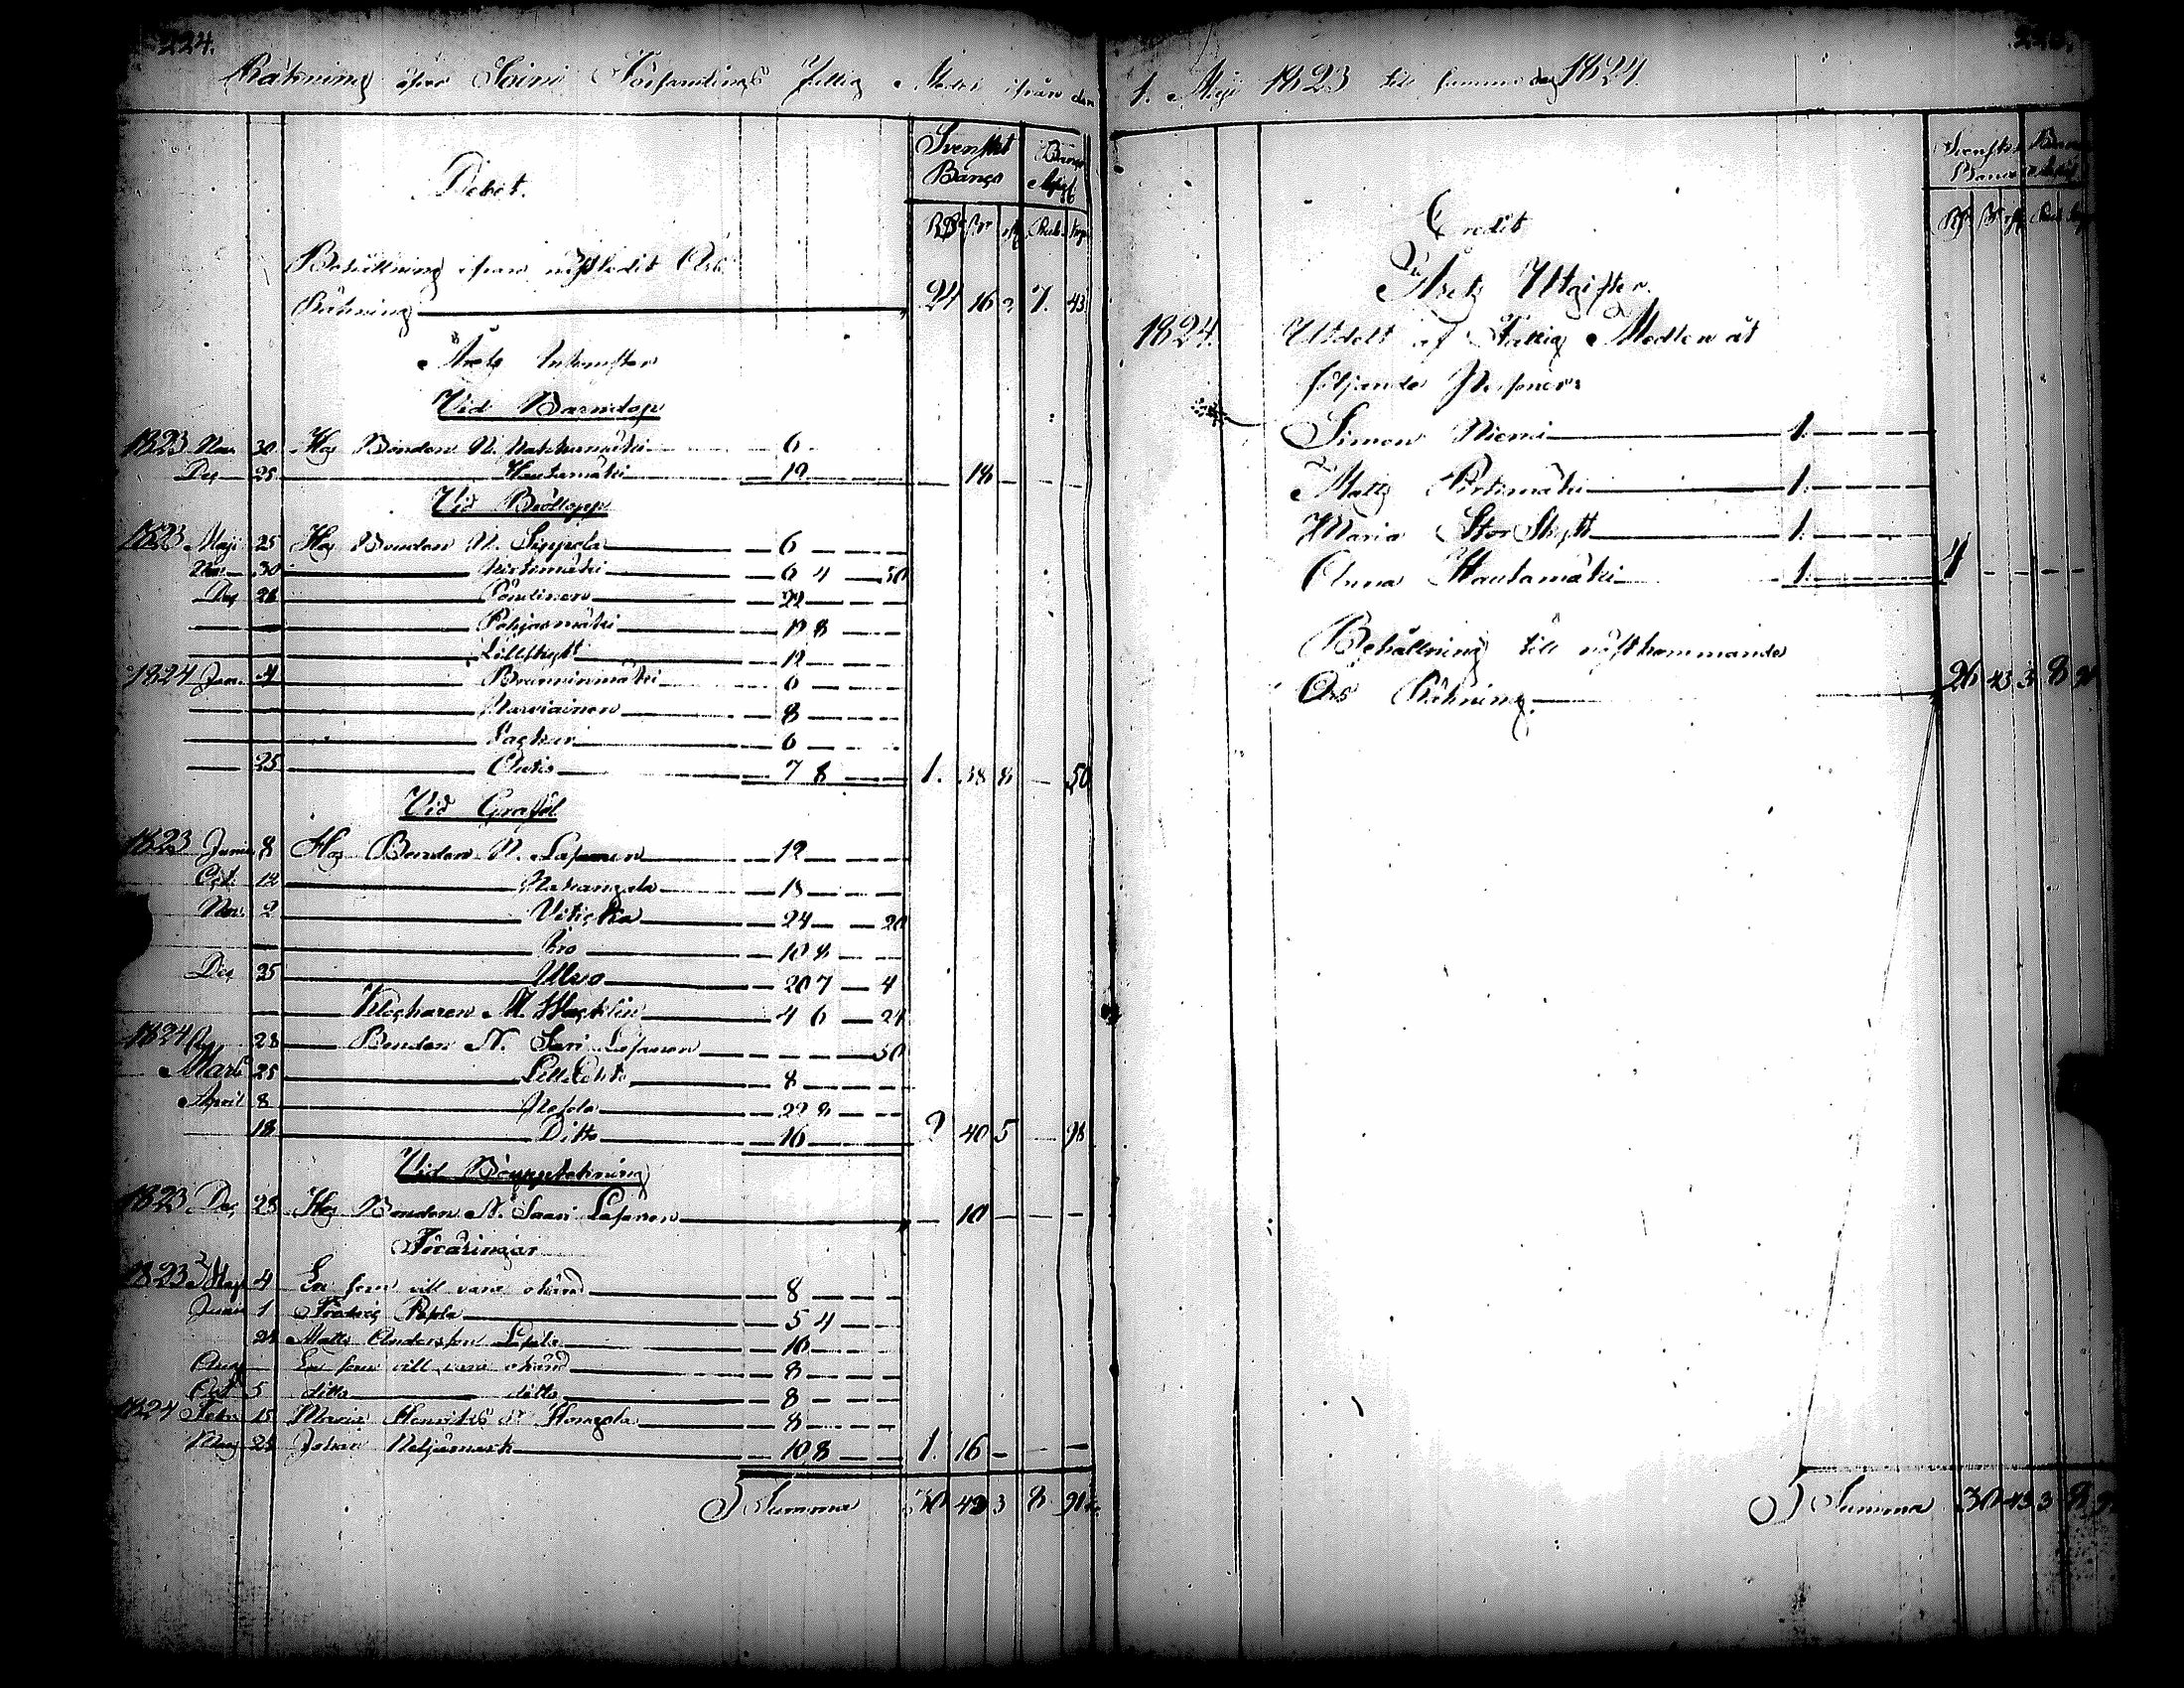 224.
Räkning öfver Soini Församlings Fattig Medel ifrån den
Debet.
Svenskt Banco
Banco Assig:
RD sk rst Rub. Kop
Behållning ifrån nästledit Års
Räkning 24 16 2 7. 43
Årets Inkomster
Vid Barndop
1823 Nov. 30 Hos Bonden N. Nakkumäki 6
Dec 25 Hautamäki 12 18
Vid Bröllopp
1823 Maji 25 Hos Bonden N. Sippola 6
Nov. 30 6 4 50
Dec 26 Pöntinen 22
Pohjasmäki 12 8
Lillskytt 12
1824 Jan. 4 6
8
6
25 Autio 7 8 1. 38 8 50
Vid Graföl
1823 Junii 8 Hos Bonden N. Lasanen 12
Oct. 12 Makangala 18
Nov. 2 24 20
Iiro 10 8
Dec 25 Ulvo 20 7 4
Klockaren M. Wacklin 4 6 24
1824 28 Bonden N. Sari Lasanen 50
Marti 25 8
April 8 22 8
18 Ditto 16 2 40 5 98
Vid Bouppteckning
1823 Dec 28 Hos Bonden N. Saari Lasanen 10
Föräringar
1823 Maji 4 En som vill vara okänd 8
Junii 1 Fredric 5 4
24 Matts Andersson 16
Aug En som vill vara okänd 8
Oct 5 ditto ditto 8
1824 Febr. 15 Maria Henriks dr 8
28 Johan Neljämark 10 8 1. 16
Summa 30 43 3 8 91
1. Maji 1823 till samma dag 1824.
Credit
Svenskt Banco
Årets Utgifter.
1824. Utdelt af Fattig Medlen åt
följande Personer
Simon Niemi 1.
Matts Pirtimäki 1.
Maria Stor Skytt 1.
Anna Hautamäki 1. 4
Behållning till nästkommande
Års Räkning. 26 43 3 8 91
Summa 30 43 3 8